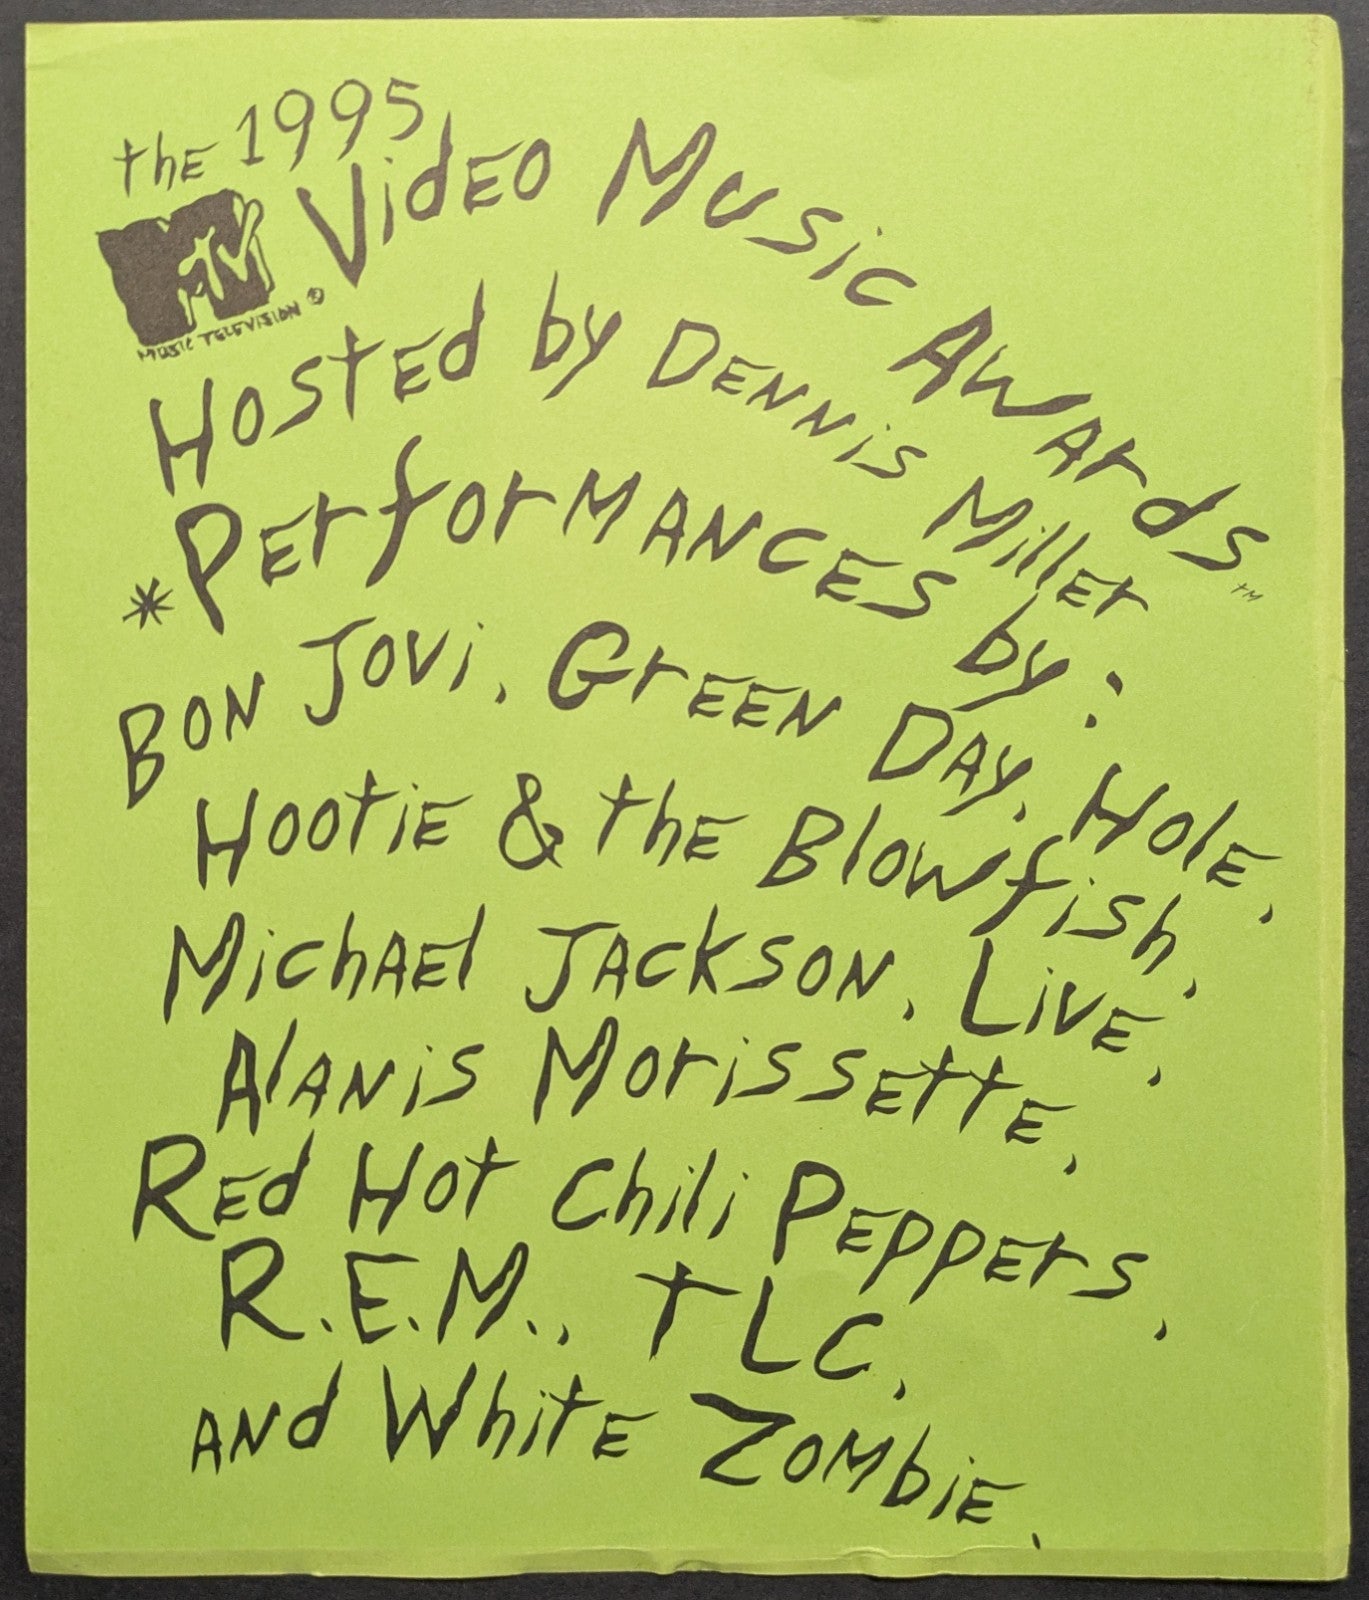 the 1995
MTV Video Music Awards™
MUSIC TELEVISION®
Hosted by Dennis Miller
*Performances by:
Bon Jovi, Green Day, Hole,
Hootie & the Blowfish,
Michael Jackson, Live,
Alanis Morissette,
Red Hot Chili Peppers,
R.E.M., TLC,
and White Zombie.